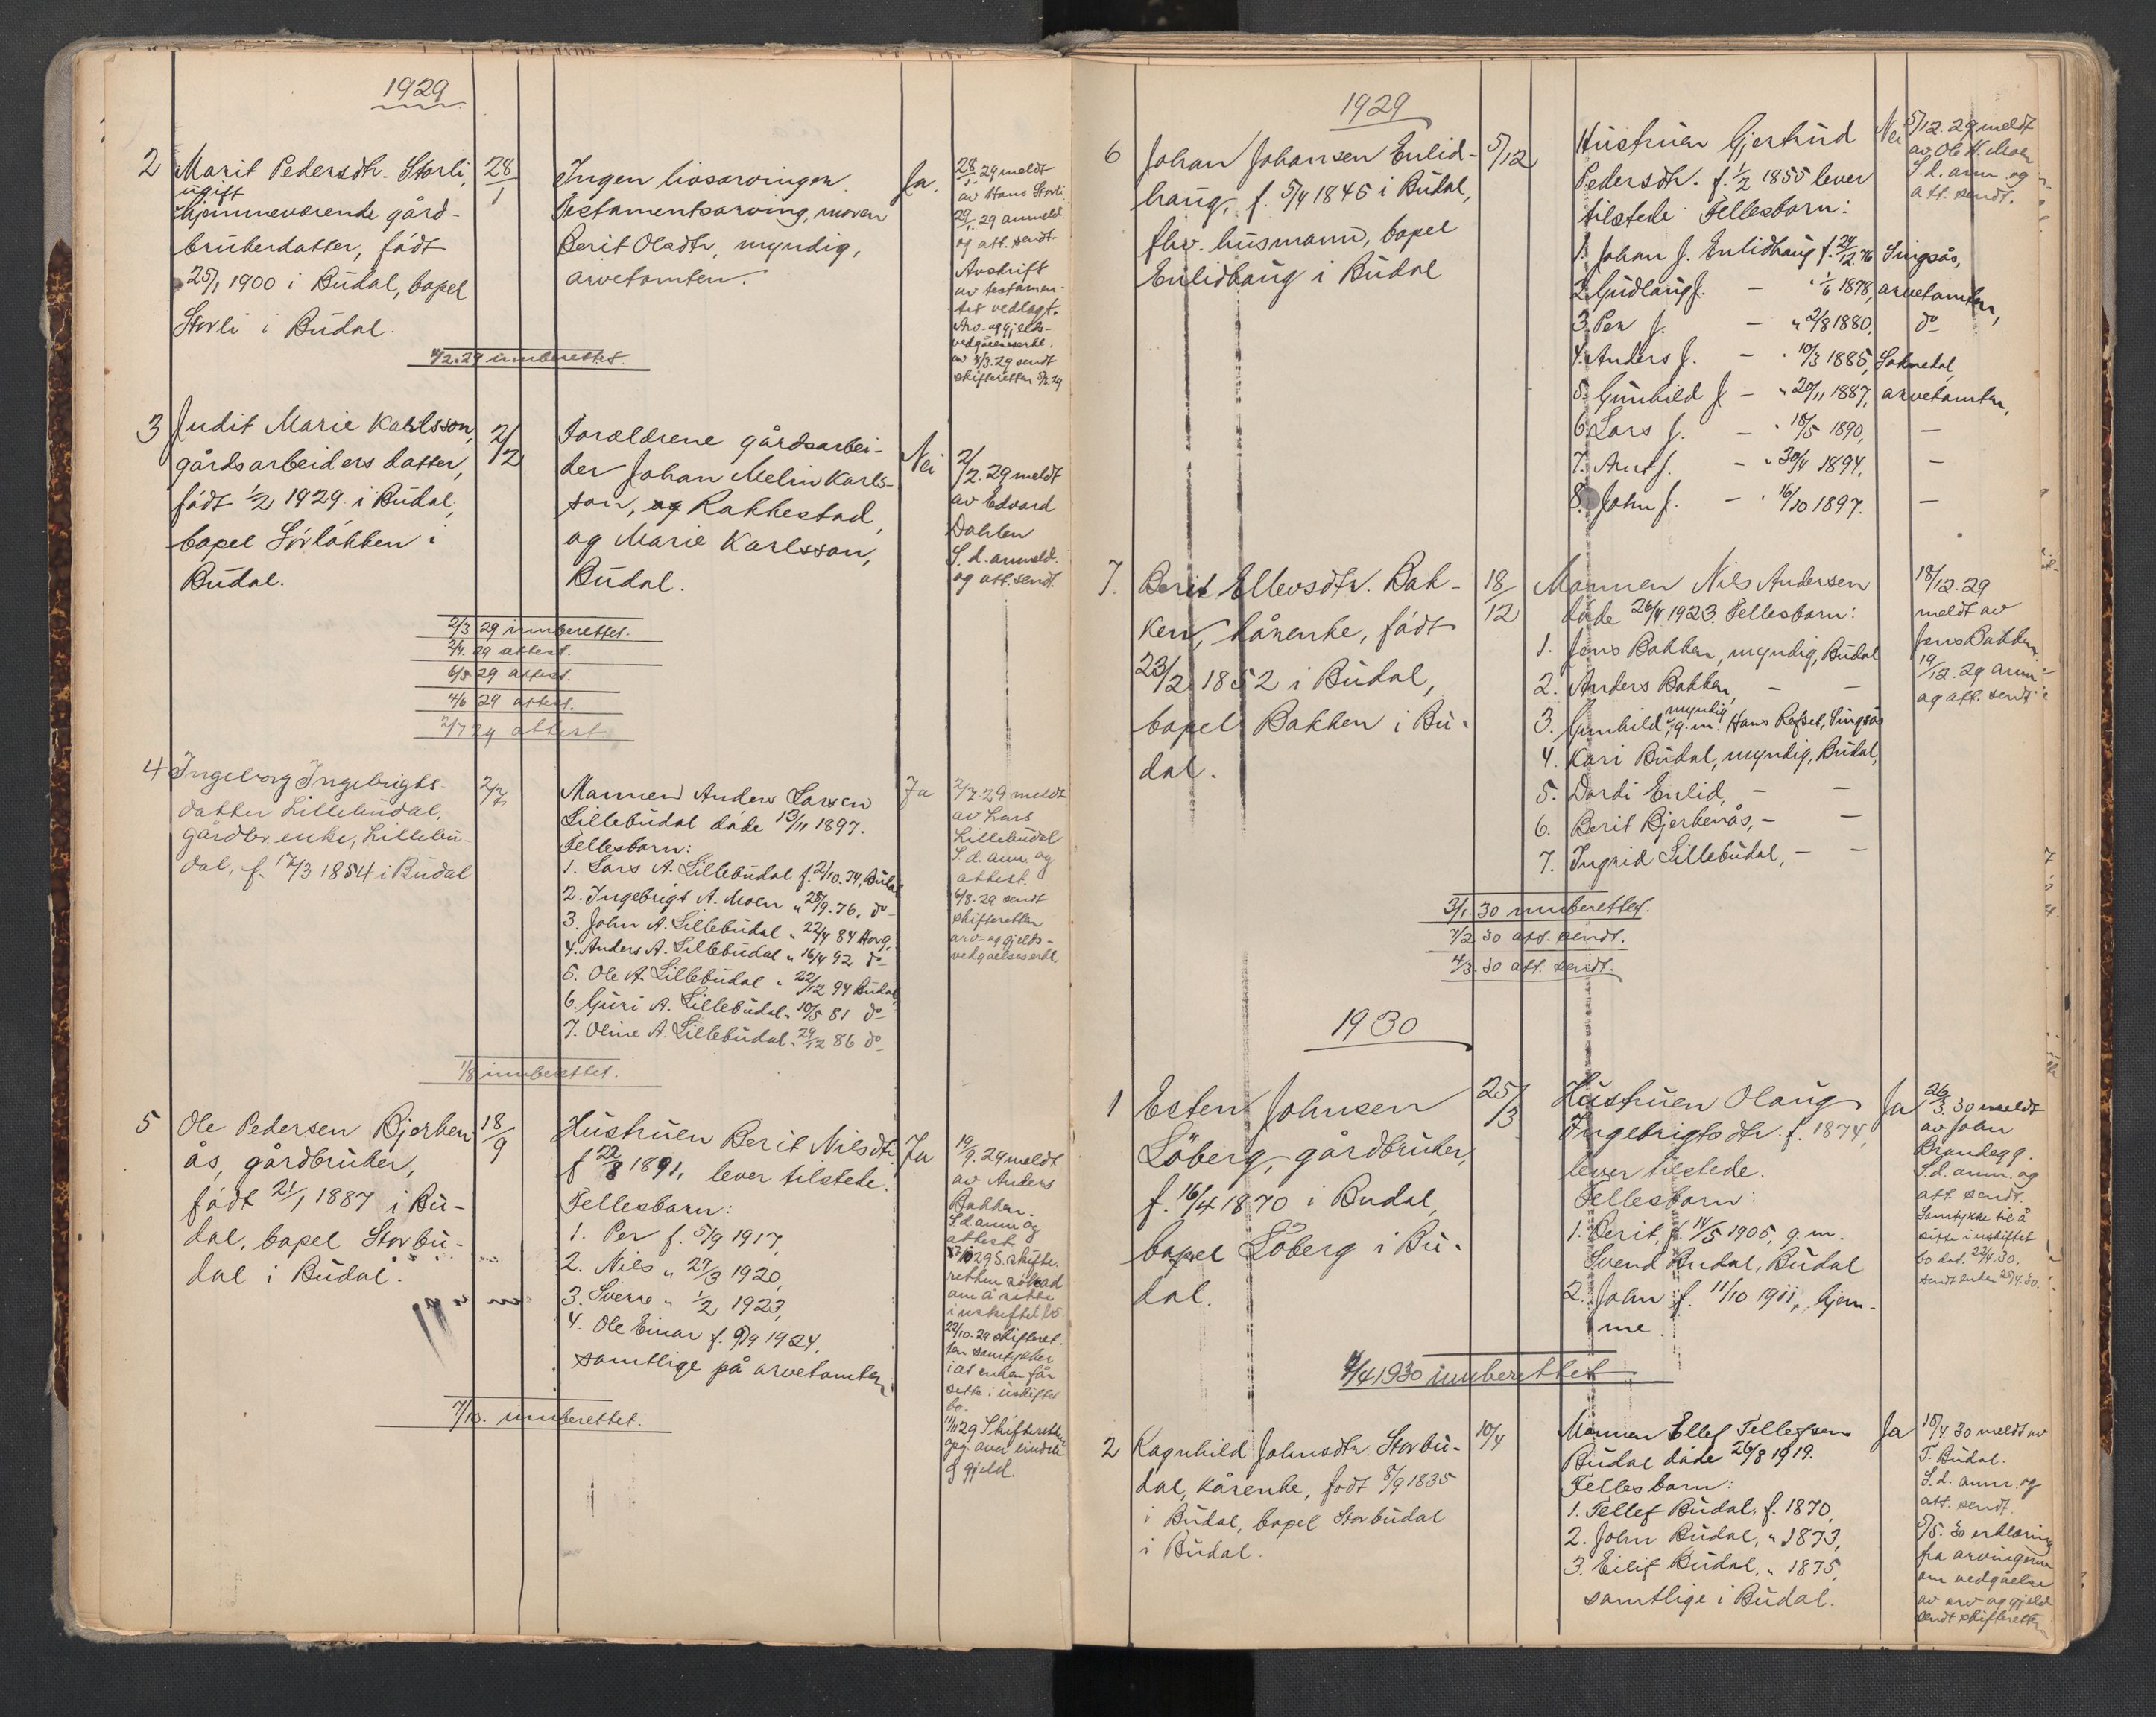 1929
2 Marit Pedersdtr. Storli,
ugift
hjemmeværende gård-
brukerdatter, født
25/1 1900 i Budal, bopel
Storli i Budal.
28/1
Ingen livsarvinger.
Testamentsarving, moren
Berit Olsdtr, myndig,
arvetomten.
Ja.
28/1. 29 meldt
av Hans Storli
29/1. 29 anmeld.
og att. sendt.
Avskrift
av testamen-
tet vedlagt.
Arv- og gjelds-
vedgåelseserkl.
av 4/3.29 sendt
skifteretten 5/3.29
4/2.29 innberettet.
3 Judit Marie Karlsson,
gårdsarbeiders datter,
født 1/2 1929 i Budal,
bopel Sörlökken i
Budal.
2/2
Foreldrene gårdsarbei-
der Johan Melin Karls-
son, Rakkestad,
og Marie Karlsson,
Budal.
Nei
2/2.29 meldt
av Edvard
Dahlen
S.d. anmeld.
og att. sendt.
2/3 29 innberettet.
2/4. 29 attest.
6/5 29 attest.
4/6 29 attest.
2/7 29 attest
4 Ingeborg Ingebrigts-
datter Lillebudal,
gårdbr. enke, Lillebu-
dal, f. 17/3 1854 i Budal
2/7
Mannen Anders Larsen
Lillebudal døde 13/11 1897.
Fellesbarn:
1. Lars A. Lillebudal f. 2/10.74, Budal
2. Ingebrigt A. Moen " 28/9.76, do
3. John A. Lillebudal " 22/4 84 Horg,
4. Anders A. Lillebudal " 16/4 92 do
5. Ole A. Lillebudal " 22/12 94 Budal,
6. Guri A. Lillebudal " 10/5 81 do
7. Oline A. Lillebudal " 29/12 86 do
Ja
2/7.29 meldt
av Lars
Lillebudal
S.d. anm. og
attest.
6/8.29 sendt
skifteretten
arv- og gjelds-
vedgåelseserkl.
1/8 innberettet.
5 Ole Pedersen Bjerken-
ås, gårdbruker,
født 21/1 1887 i Bu-
dal, bopel Storbu-
dal i Budal.
18/9
Hustruen Berit Nilsdtr.
f 22/8 1891, lever tilstede.
Fellesbarn:
1. Per f. 5/9 1917,
2. Nils " 27/3 1920,
3. Sverre " 1/2 1923,
4. Ole Einar f. 9/9 1924,
samtlige på arvetomten
Ja
19/9. 29 meldt
av Anders
Bakken.
S d anm og
attest
29 S. skifte-
retten søknad
om å sitte
i uskiftet bo
22/10.29 skifteret-
ten samtykker
i at enken får
sitte i uskiftet
bo.
11/11 29 Skifteretten
opg. over
& gjeld.
7/10. innberettet.
1929
6 Johan Johansen Enlid-
haug, f. 5/4 1845 i Budal,
fhv. husmann, bopel
Enlidhaug i Budal
5/12
Hustruen Gjertrud
Pedersdtr. f. 1/2 1855 lever
tilstede Fellesbarn:
1. Johan J. Enlidhaug f. 24/12.76 Singsås,
2. Gudlaug J. — " 1/6 1878, arvetomten,
3. Per J. — " 2/8 1880, do
4. Anders J. — " 10/3 1885, Soknedal,
5. Gunhild J — " 20/11 1887, arvetomten,
6. Lars J. — " 18/5 1890, —
7. Arnt J. — " 30/4 1894, —
8. John J. — " 16/10 1897. —
Nei
5/12.29 meldt
av Ole H. Moen
S.d. anm. og
att. sendt.
7. Berit Ellevsdtr. Bak-
ken, kårenke, født
23/2 1852 i Budal,
bopel Bakken i Bu-
dal.
18/12
Mannen Nils Andersen
døde 26/4 1923. Fellesbarn:
1. Jens Bakken, myndig, Budal
2. Anders Bakken, — —
3. Gunhild, myndig, g.m. Hans Refset, Singsås
4. Kari Budal, myndig, Budal,
5. Dordi Enlid, — —
6. Berit Bjerkenås, — —
7. Ingrid Lillebudal, — —
18/12.29
meldt av
Jens Bakken.
19/12.29 anm
og att. sendt
3/1.30 innberettet.
7/2 30 att. sendt.
4/3.30 att. sendt.
1930
1 Esten Johnsen
Löberg, gårdbruker,
f. 16/4 1870 i Budal,
bopel Löberg i Bu-
dal.
25/3
Hustruen Olaug
Ingebrigtsdtr. f. 1874,
lever tilstede.
Fellesbarn:
1. Berit, f. 14/5 1905, g.m.
Svend Budal, Budal
2. John f. 11/10 1911, hjem-
me.
Ja
26/3.30 meldt
av John
Brandegg.
S.d. anm. og
att. sendt.
Samtykke til å
sitte i uskiftet
bo dat. 22/4.30,
sendt enken 25/4.30.
4/4 1930 innberettet
2 Ragnhild Johnsdtr. Storbu-
dal, kårenke, født 5/9 1835
i Budal, bopel Storbudal
i Budal.
10/4
Mannen Ellef Tellefsen
Budal døde 26/8 1919.
Fellesbarn:
1. Tellef Budal, f. 1870,
2. John Budal, " 1873,
3. Eilif Budal, " 1875,
samtlige i Budal.
Ja
15/4.30 meldt av
T. Budal.
S.d. anm. og
att. sendt.
5/5.30 erklæring
fra arvingerne
om vedgåelse
av arv og gjeld
sendt skifteretten